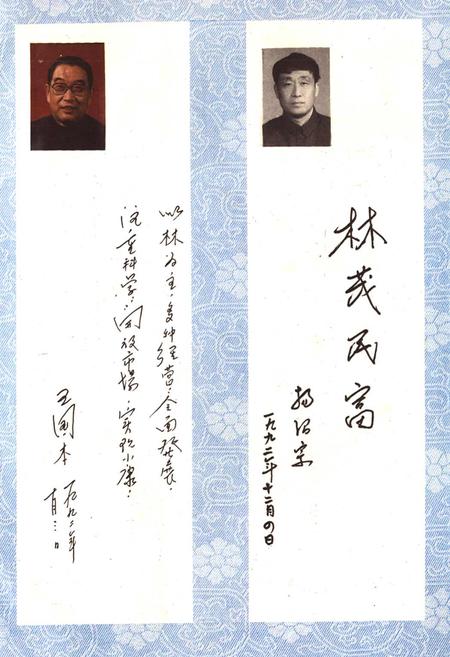 林茂民富
杨治宗
一九九二年十二月四日
以林为主,多种经营,全面发展,
注重科学,开放市场,实现小康.
王国本
一九九二年